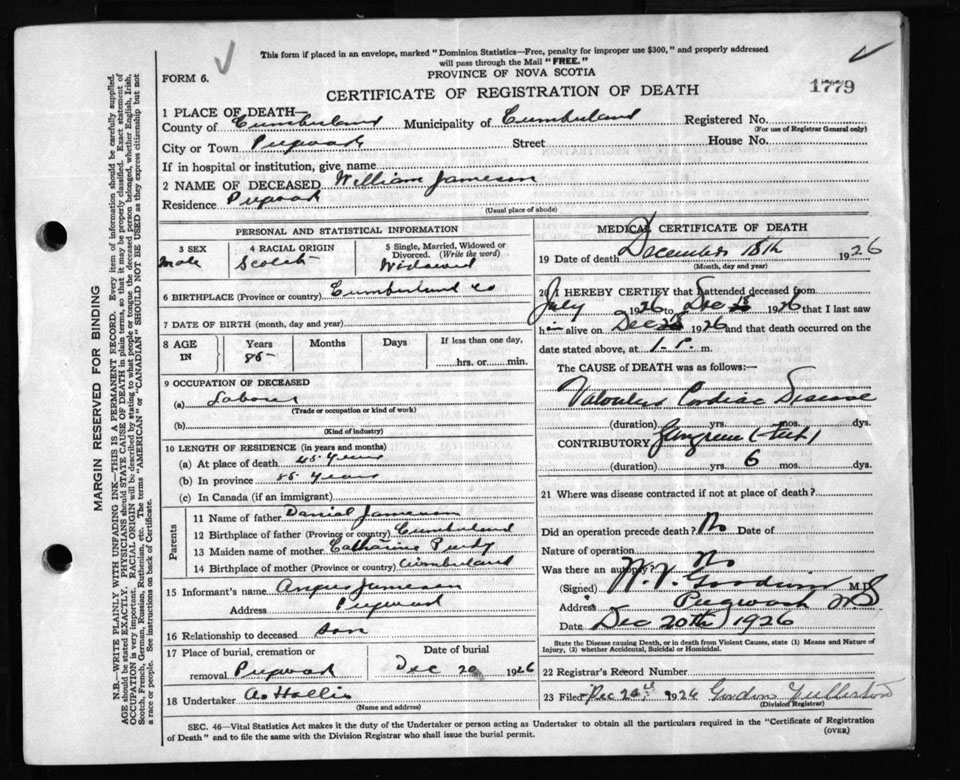 This form if placed in an envelope, marked "Dominion Statistics—Free, penalty for improper use $300," and properly addressed
will pass through the Mail "FREE."
FORM 6.
PROVINCE OF NOVA SCOTIA
CERTIFICATE OF REGISTRATION OF DEATH
1779
1 PLACE OF DEATH—
County of Cumberland Municipality of Cumberland Registered No.
(For use of Registrar General only)
City or Town Pugwash Street House No.
If in hospital or institution, give name
2 NAME OF DECEASED William Jameson
Residence Pugwash
(Usual place of abode)
PERSONAL AND STATISTICAL INFORMATION
3 SEX 4 RACIAL ORIGIN 5 Single, Married, Widowed or
Divorced. (Write the word)
Male Scotch Widowed
6 BIRTHPLACE (Province or country) Cumberland Co
7 DATE OF BIRTH (month, day and year)
8 AGE IN Years Months Days If less than one day,
85 hrs. or min.
9 OCCUPATION OF DECEASED
(a) Labour
(Trade or occupation or kind of work)
(b)
(Kind of industry)
10 LENGTH OF RESIDENCE (in years and months)
(a) At place of death 45 years
(b) In province 85 years
(c) In Canada (if an immigrant)
Parents
11 Name of father Daniel Jameson
12 Birthplace of father (Province or country) Cumberland
13 Maiden name of mother Catharine Purdy
14 Birthplace of mother (Province or country) Cumberland
15 Informant's name Angus Jameson
Address Pugwash
16 Relationship to deceased Son
17 Place of burial, cremation or Date of burial
removal Pugwash Dec 20 1926
18 Undertaker A. Hollis
(Name and address)
MEDICAL CERTIFICATE OF DEATH
19 Date of death December 18th 1926
(Month, day and year)
20 I HEREBY CERTIFY that I attended deceased from
July 1926 to Dec 18 1926 that I last saw
him alive on Dec 1926 and that death occurred on the
date stated above, at 1. P. m.
The CAUSE of DEATH was as follows:—
Valvular Cardiac Disease
(duration) yrs. mos. dys.
CONTRIBUTORY Gangrene (feet)
(duration) yrs. 6 mos. dys.
21 Where was disease contracted if not at place of death?
Did an operation precede death? No Date of
Nature of operation
Was there an autopsy? No
(Signed) Goodwin M.D.
Address Pugwash NS
Date Dec 20th 1926
State the Disease causing Death, or in death from Violent Causes, state (1) Means and Nature of
Injury, (2) whether Accidental, Suicidal or Homicidal.
22 Registrar's Record Number
23 Filed Dec 1926 Gordon Fullerton
(Division Registrar)
SEC. 46—Vital Statistics Act makes it the duty of the Undertaker or person acting as Undertaker to obtain all the particulars required in the "Certificate of Registration
of Death" and to file the same with the Division Registrar who shall issue the burial permit.
(OVER)
MARGIN RESERVED FOR BINDING
N.B.—WRITE PLAINLY WITH UNFADING INK—THIS IS A PERMANENT RECORD. Every item of information should be carefully supplied.
AGE should be stated EXACTLY. PHYSICIANS should STATE CAUSE OF DEATH in plain terms, so that it may be properly classified. Exact statement of
OCCUPATION is very important. RACIAL ORIGIN will be described by stating to what people or tongue the deceased person belonged, whether English, Irish,
Scotch, French, German, Russian, Ruthenian, etc. The terms "AMERICAN" or "CANADIAN" SHOULD NOT BE USED as they express citizenship but not
a race or people. See instructions on back of Certificate.